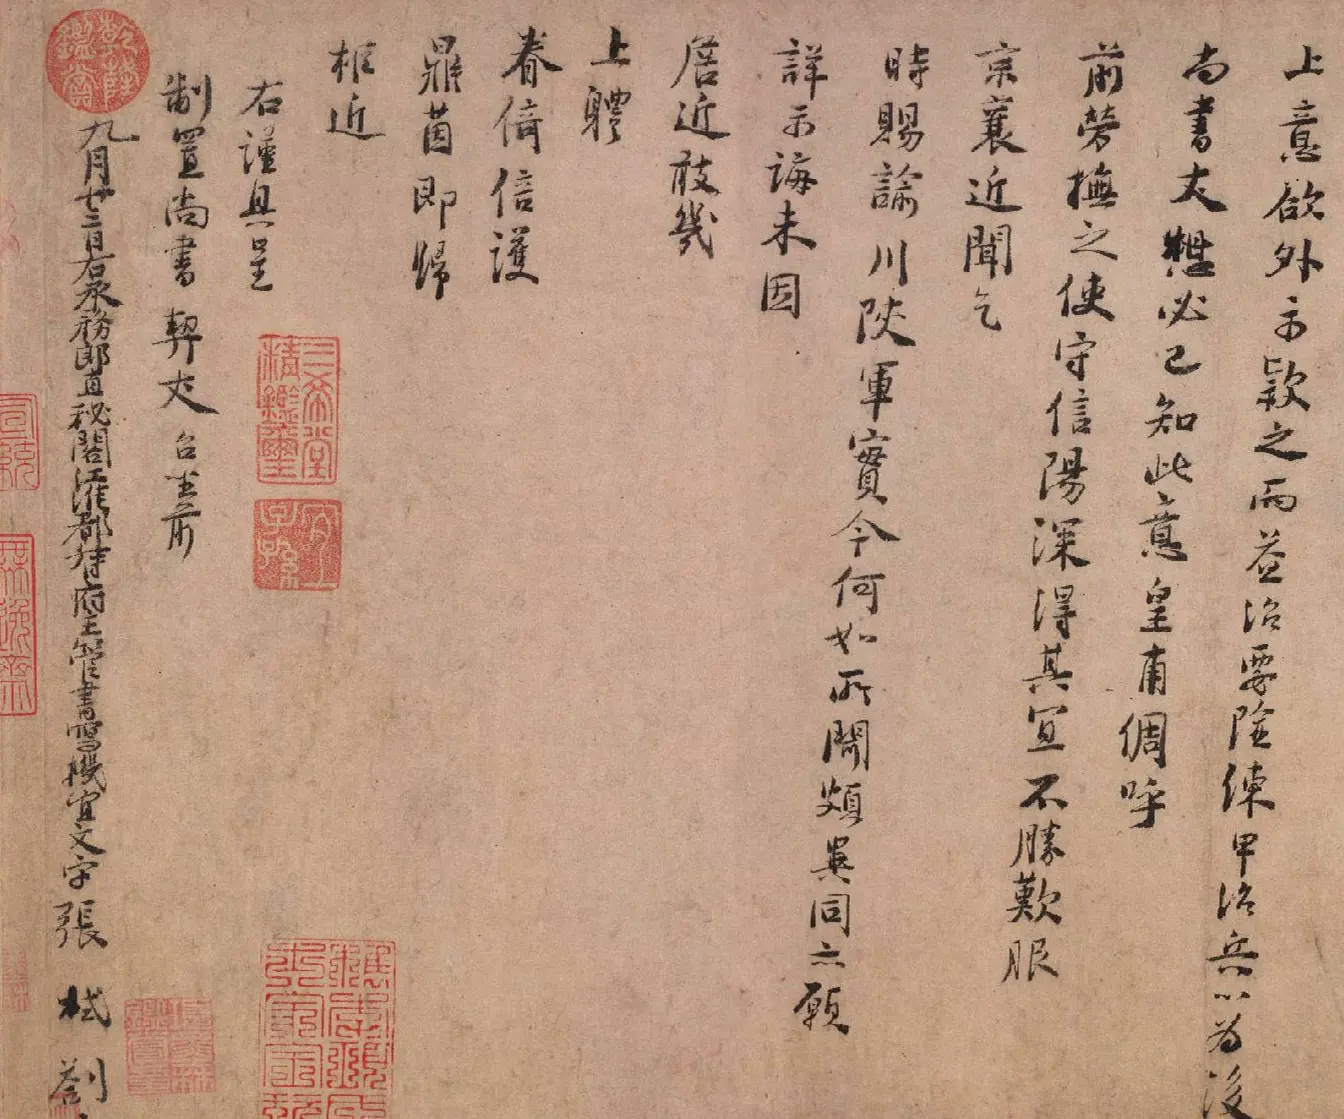 上意欲外示款之而益治要險練甲治兵以為後
尚書丈 必已知此意皇甫倜呼
前勞撫之使守信陽深得其宜不勝歎服
京襄近聞乞
時賜諭川陝軍實今何如所聞頗異同亦願
詳示誨未因
居近敢幾
上體
眷倚信護
鼎茵即歸
柩近
右謹具呈
制置尚書契丈台坐前
九月廿二日右承務郎直秘閣 都督府主管書寫機宜文字張栻劄
三希堂精鑑璽
宜子孫